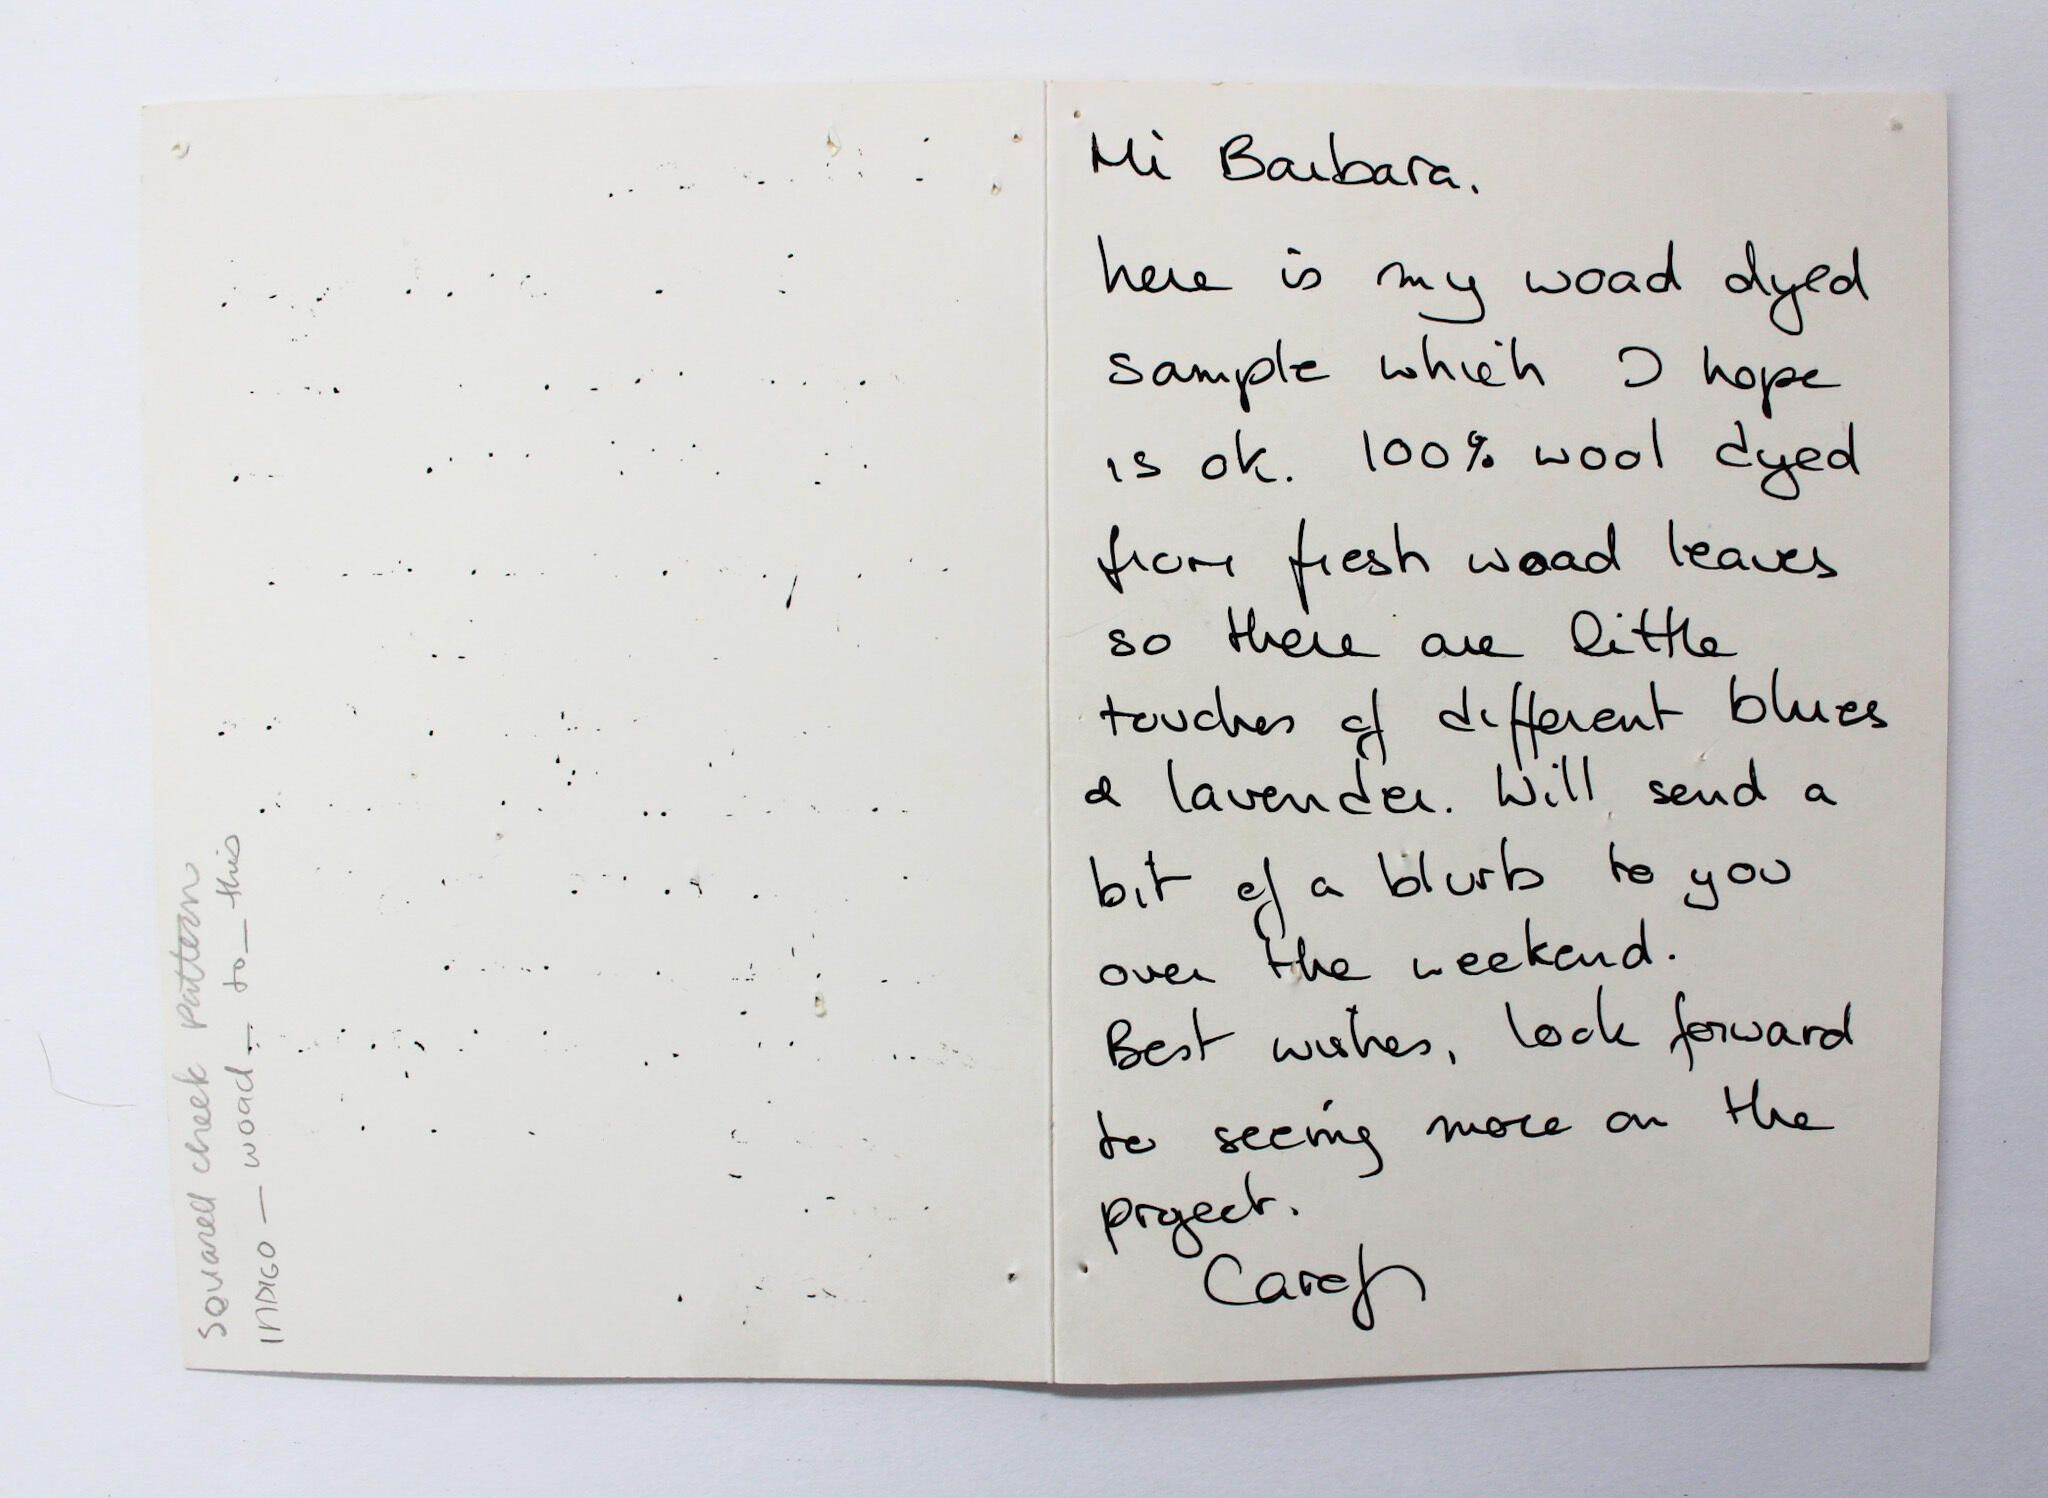 Squared check pattern
INDIGO — woad — to — this
Hi Barbara.
here is my woad dyed
sample which I hope
is ok. 100% wool dyed
from fresh woad leaves
so there are little
touches of different blues
& lavender. Will send a
bit of a blurb to you
over the weekend.
Best wishes, look forward
to seeing more on the
project.